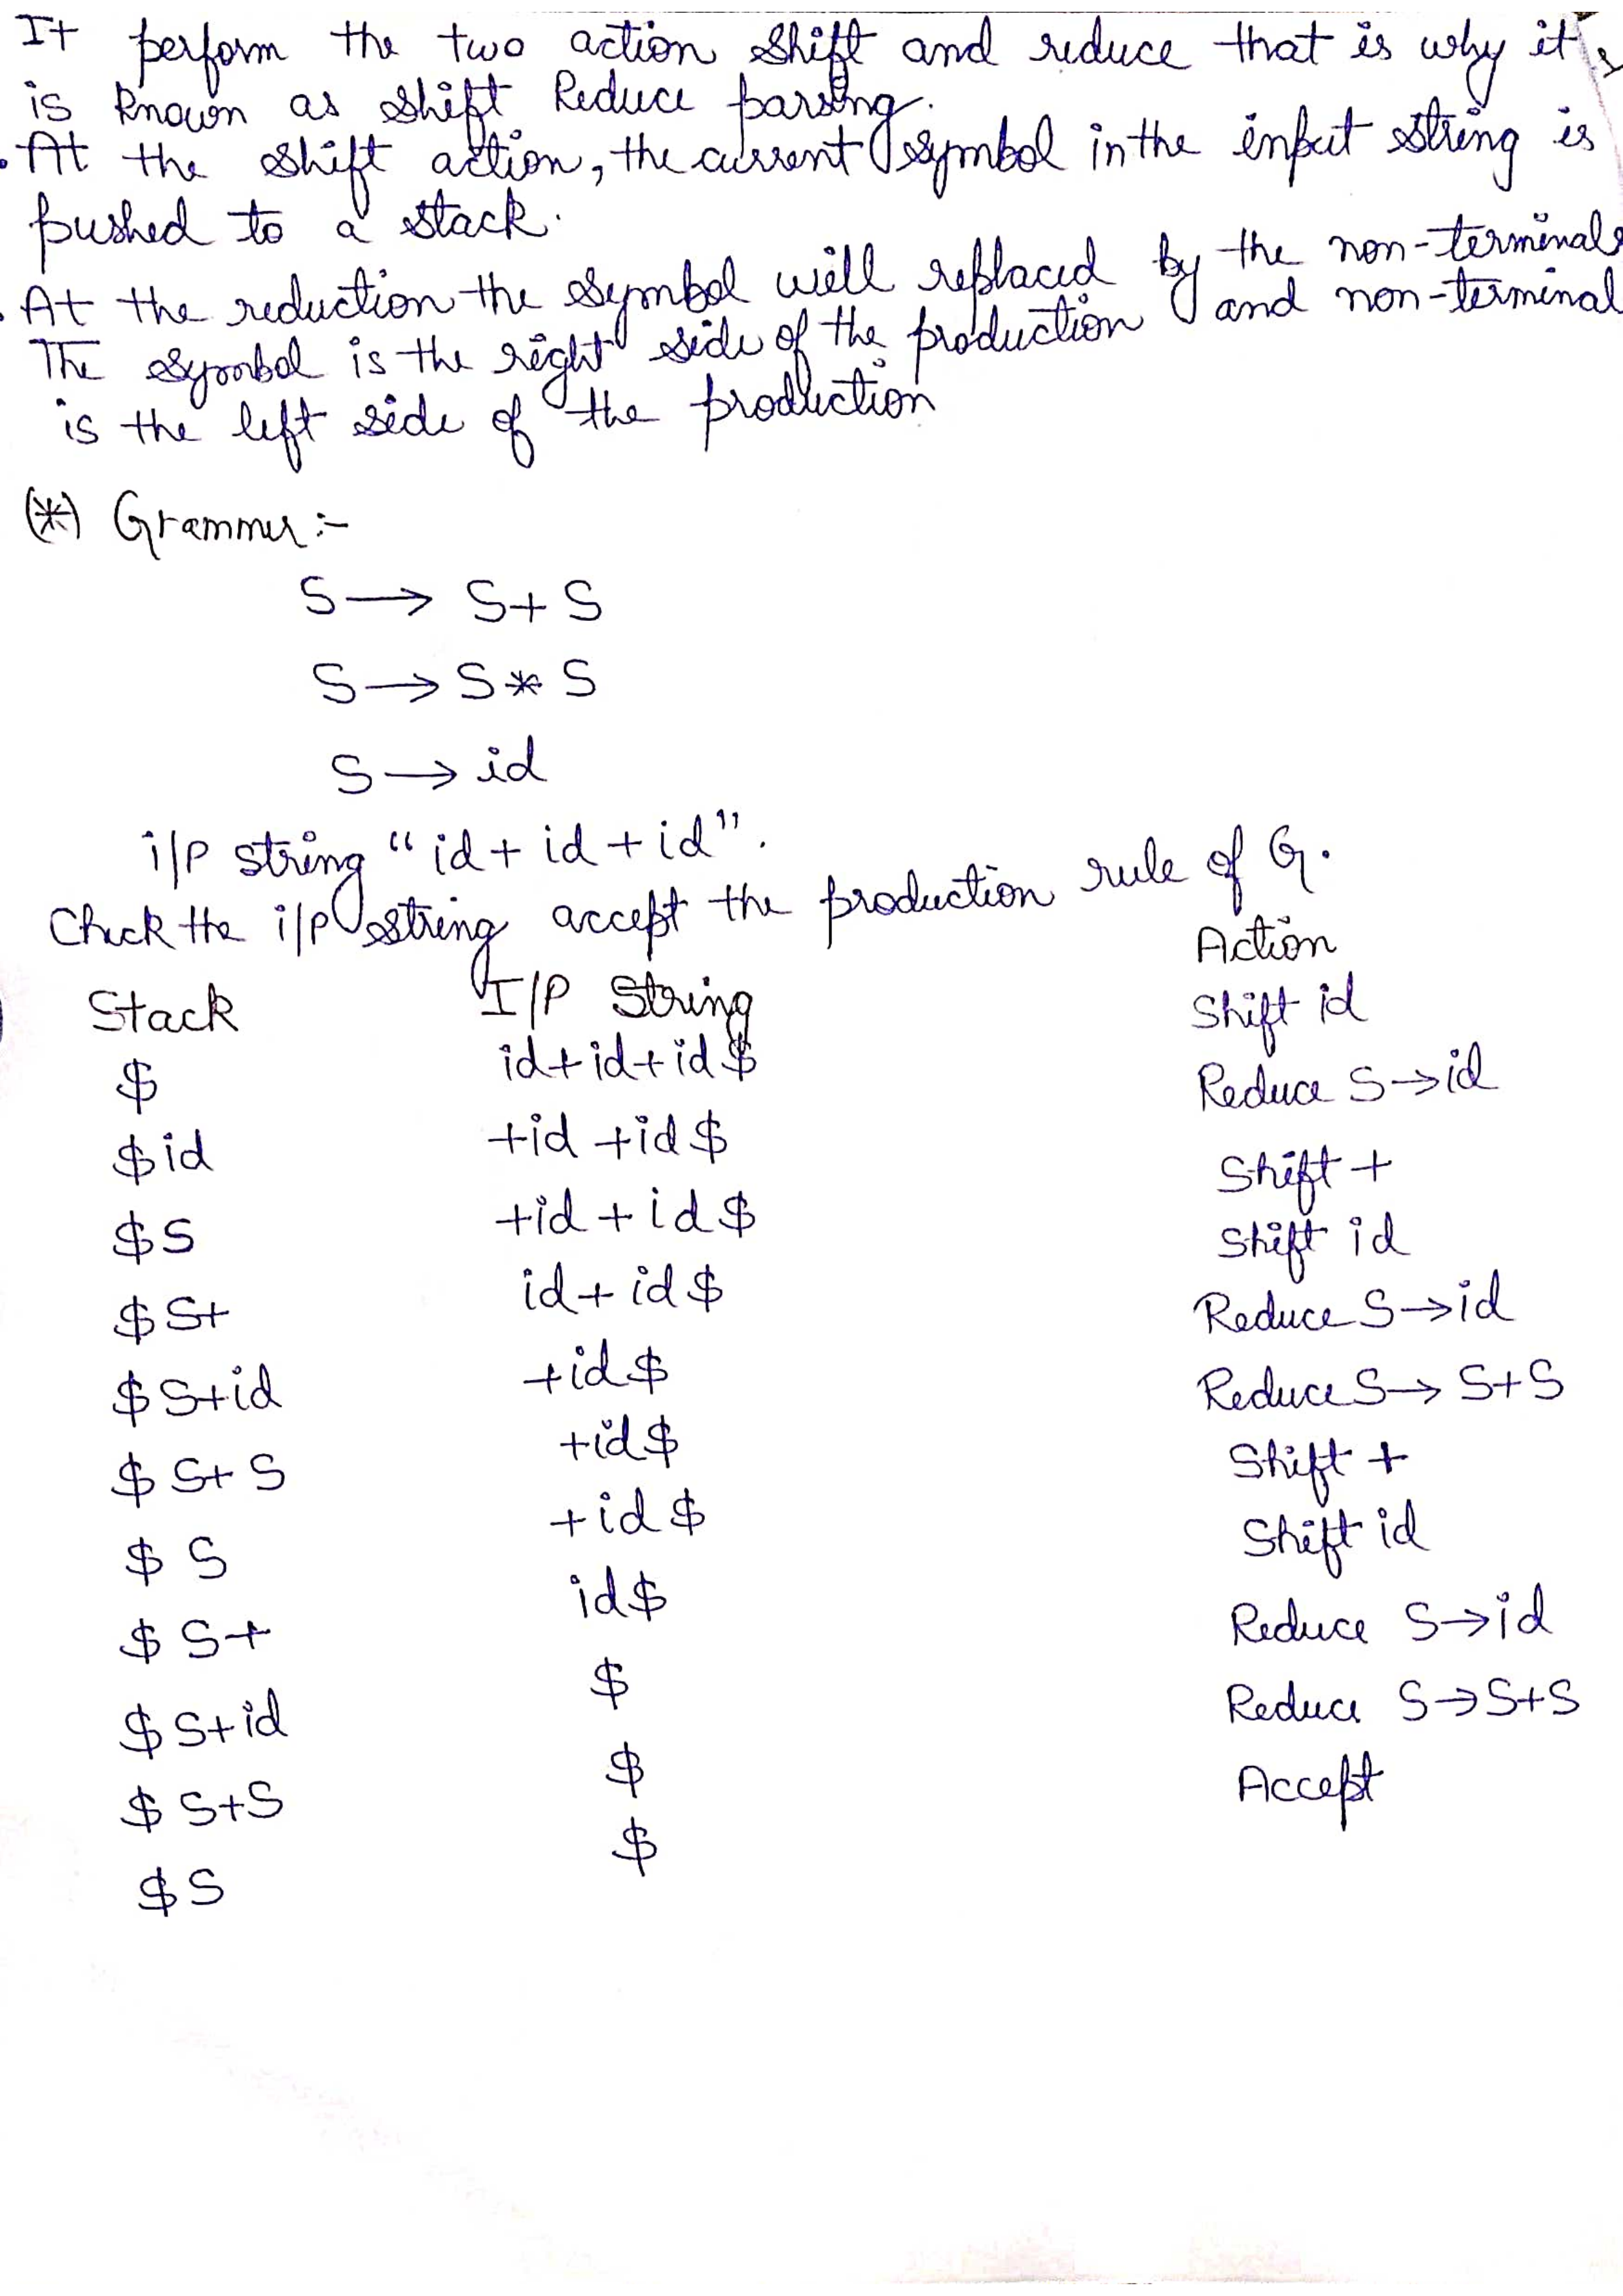 It perform the two action shift and reduce that is why it
is known as shift Reduce parsing.
. At the shift action, the current symbol in the input string is
pushed to a stack.
. At the reduction the symbol will replaced by the non-terminals
The symbol is the right side of the production and non-terminal
is the left side of the production
(*) Grammer :-
S → S + S
S → S * S
S → id
i/p string "id + id + id".
Check the i/p string accept the production rule of G.
Stack I/P String Action
$ id+id+id$ Shift id
$id +id +id$ Reduce S→id
$S +id + id$ Shift +
$S+ id + id$ Shift id
$S+id +id$ Reduce S→id
$S+S +id$ Reduce S→ S+S
$ S +id$ Shift +
$ S+ id$ Shift id
$ S+id $ Reduce S→id
$ S+S $ Reduce S→S+S
$S $ Accept